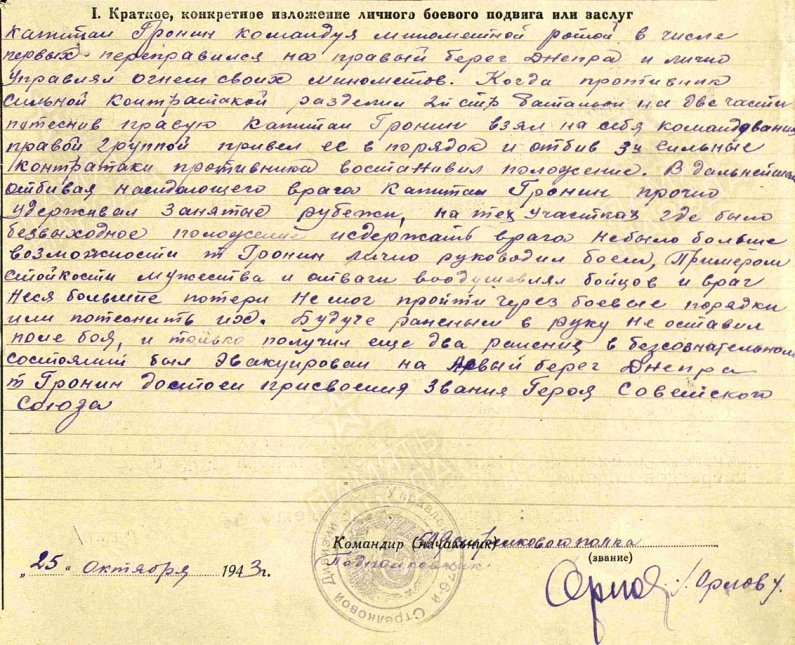 I. Краткое, конкретное изложение личного боевого подвига или заслуг
Капитан Гронин командуя минометной ротой в числе
первых переправился на правый берег Днепра и лично
управлял огнем своих минометов. Когда противник
сильной контратакой разделил 2й стр батальон на две части
потеснив правую Капитан Гронин взял на себя командование
правой группой привел ее в порядок и отбив 3и сильные
контратаки противника востановил положение. В дальнейшем
отбивая наседающего врага Капитан Гронин прочно
удерживал занятые рубежи, на тех участках где было
безвыходное положение исдержать врага небыло больше
возможности т Гронин лично руководил боем, Примером
стойкости мужества и отваги воодушевлял бойцов и враг
Неся большие потери не мог пройти через боевые порядки
или потеснить их. Будуче раненым в руку не оставил
поле боя, и только получил еще два ранения в безсознательном
состоянии был эвакуирован на левый берег Днепра
т Гронин достоен присвоения Звания Героя Советского
Союза
Командир (начальник) стрелкового полка
(звание)
Подполковник
„25" октября 1943г.
Орлов
Управление 76-й Стрелковой Дивизии